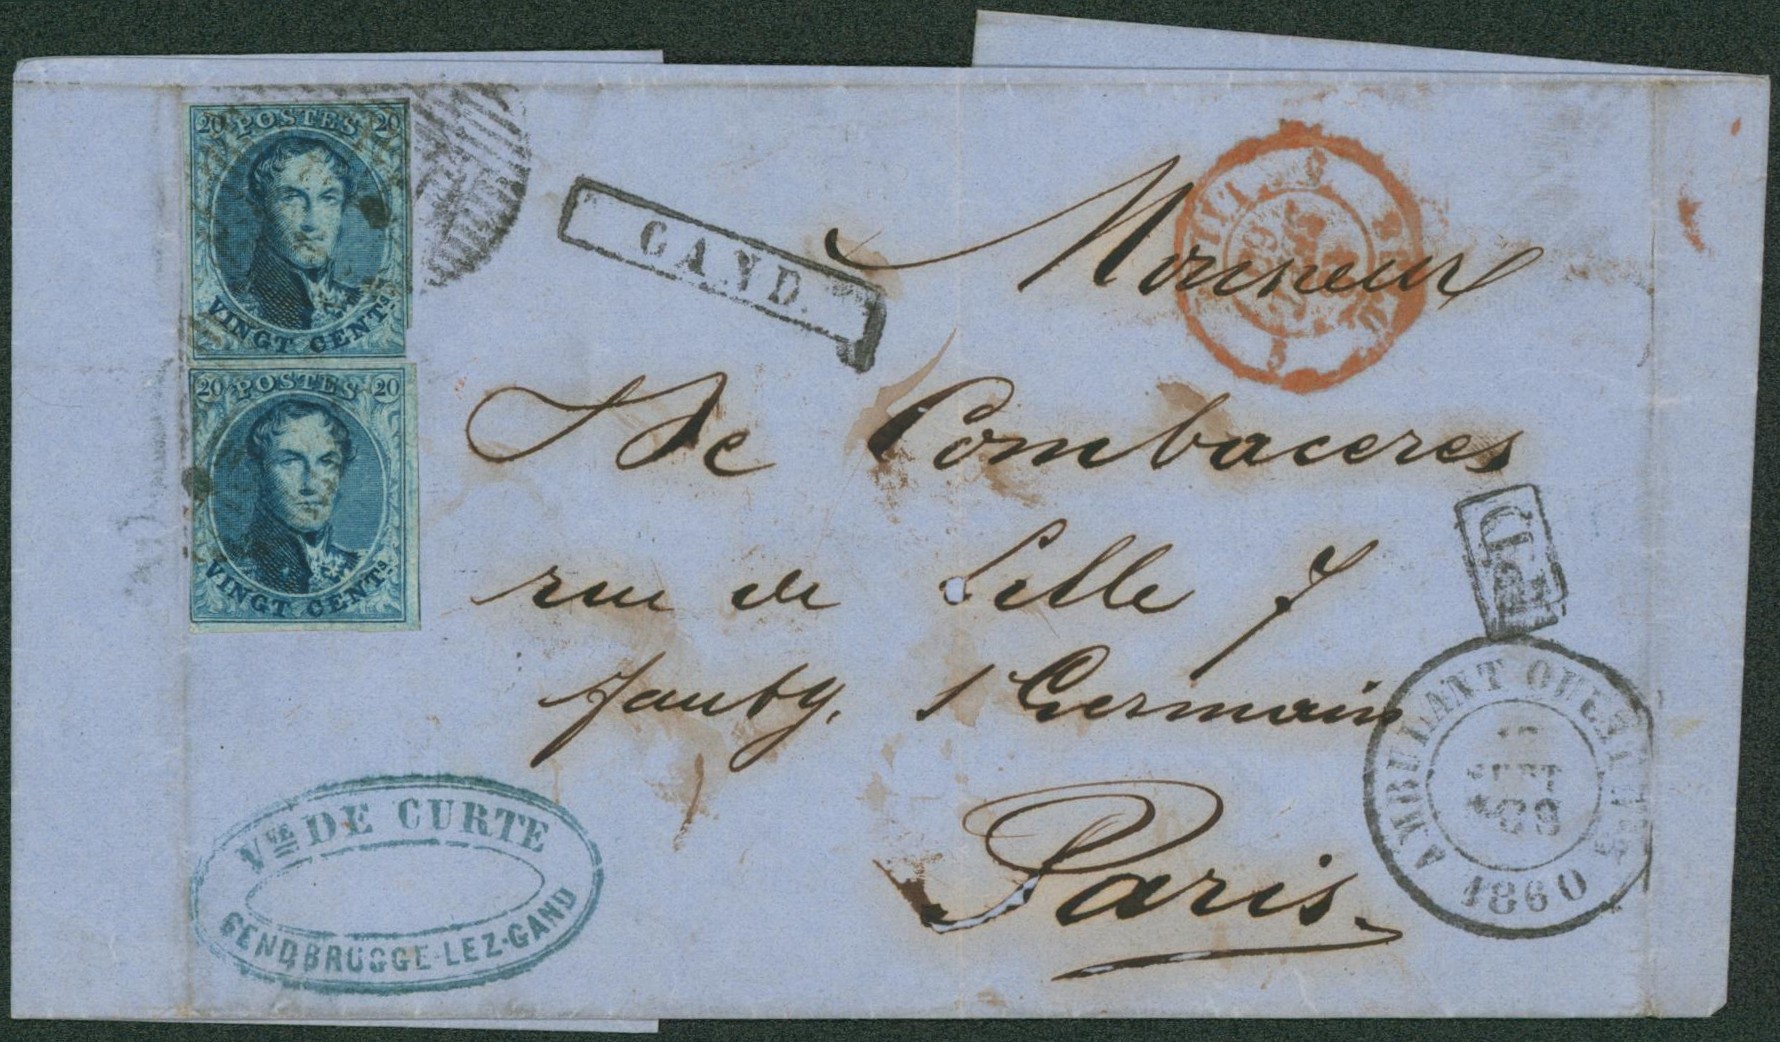 20 POSTES 20
VINGT CENTS.
20 POSTES 20
VINGT CENTS.
GAND.
Monsieur
De Combaceres
rue de Lille 7
faubg. St Germain
Paris
PD
AMBULANT OUEST
1860
Vve DE CURTE
GENDBRUGGE-LEZ-GAND